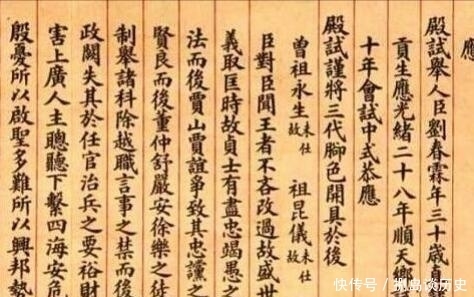 應
殿試舉人臣劉春霖年三十歲直
貢生應光緒二十八年順天鄉
十年會試中式恭應
殿試謹將三代腳色開具於後
曾祖永生未仕故 祖昆儀未仕故
臣對臣聞王者不吝改過故盛世
義取匡時故貢士有盡忠竭愚之
法而後賈山賈誼爭致其忠讜之
賢良而後董仲舒嚴安徐樂之徒
制舉諸科除越職言事之禁而後
政闕失其於任官治兵之要裕財
害上廣人主聰聽下繫四海安危
殷憂所以啟聖多難所以興邦勢
快传号/岛谈历史